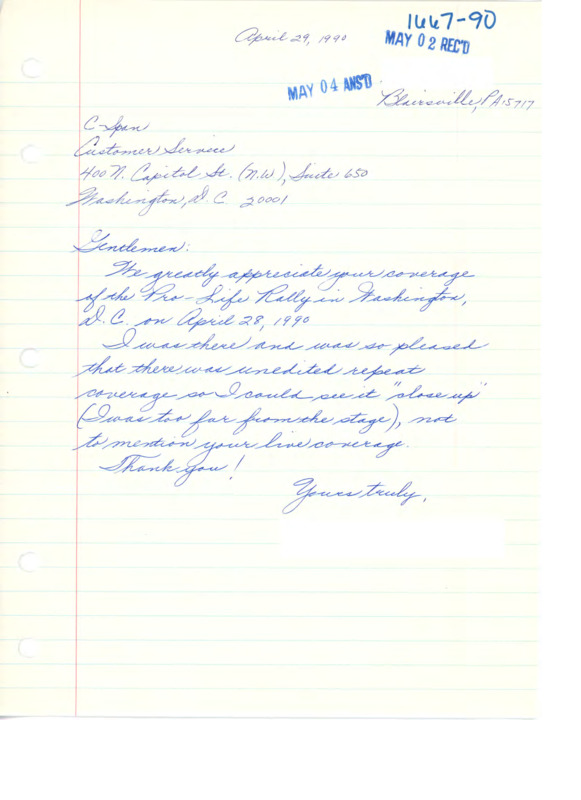 1667-90
April 29, 1990
MAY 02 REC'D
MAY 04 ANS'D
Blairsville, PA 15717
C-Span
Customer Service
400 N. Capitol St. (N.W.), Suite 650
Washington, D.C. 20001
Gentlemen:
We greatly appreciate your coverage
of the Pro-Life Rally in Washington,
D.C. on April 28, 1990
I was there and was so pleased
that there was unedited repeat
coverage so I could see it "close up"
(I was too far from the stage), not
to mention your live coverage.
Thank you!
Yours truly,